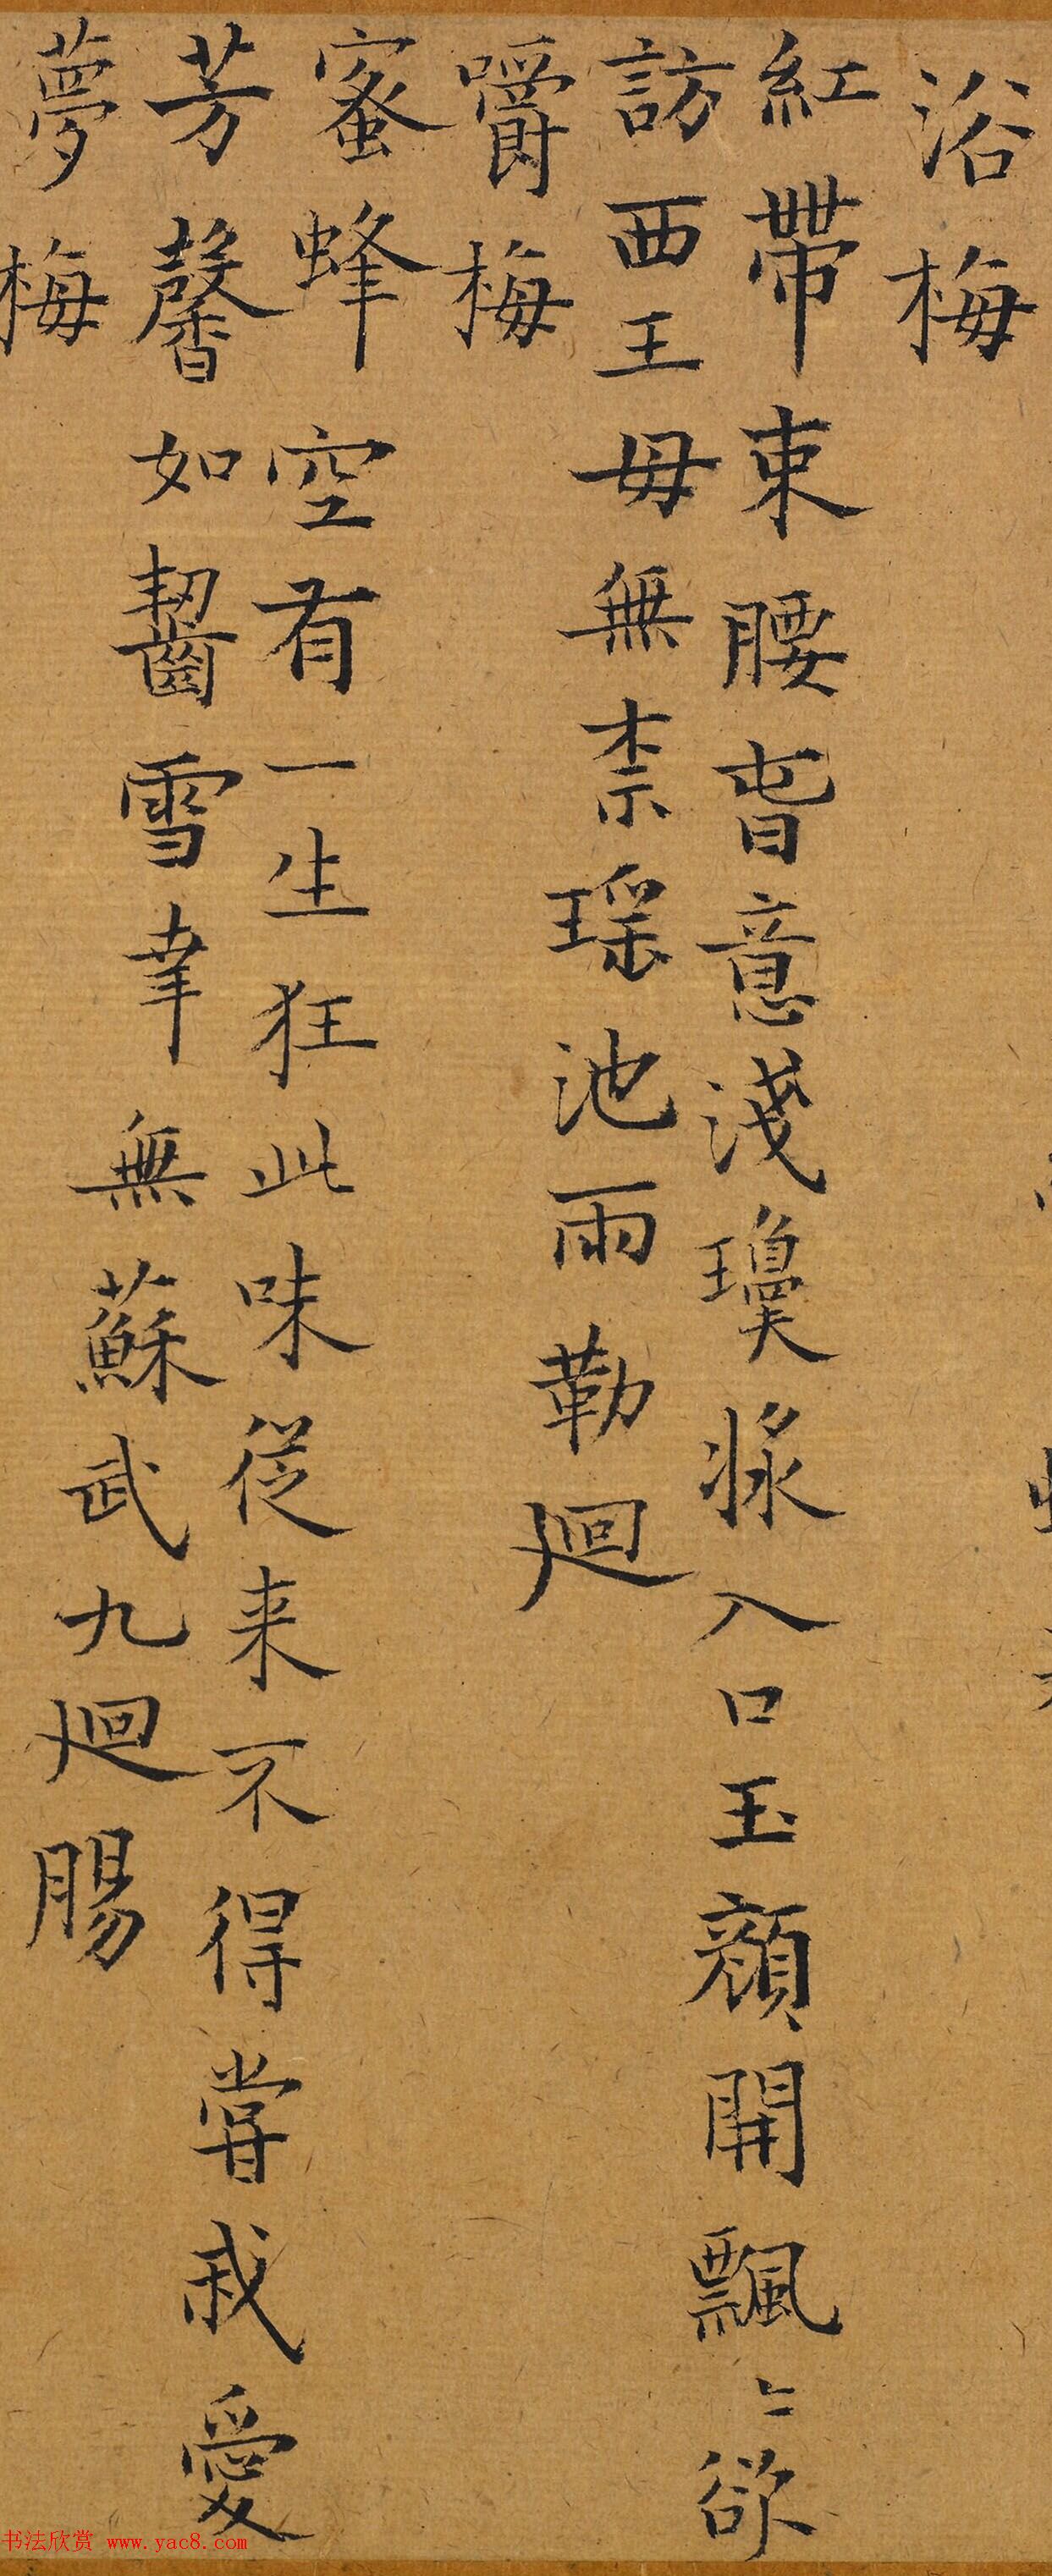 浴梅
紅帶束腰春意淺瓊漿入口玉顏開飄〻欲
訪西王毋無柰瑶池雨勒迴
嚼梅
蜜蜂空有一生狂此味從来不得嘗我愛
芳馨如齧雪幸無蘇武九迴腸
夢梅
书法欣赏 www.yac8.com